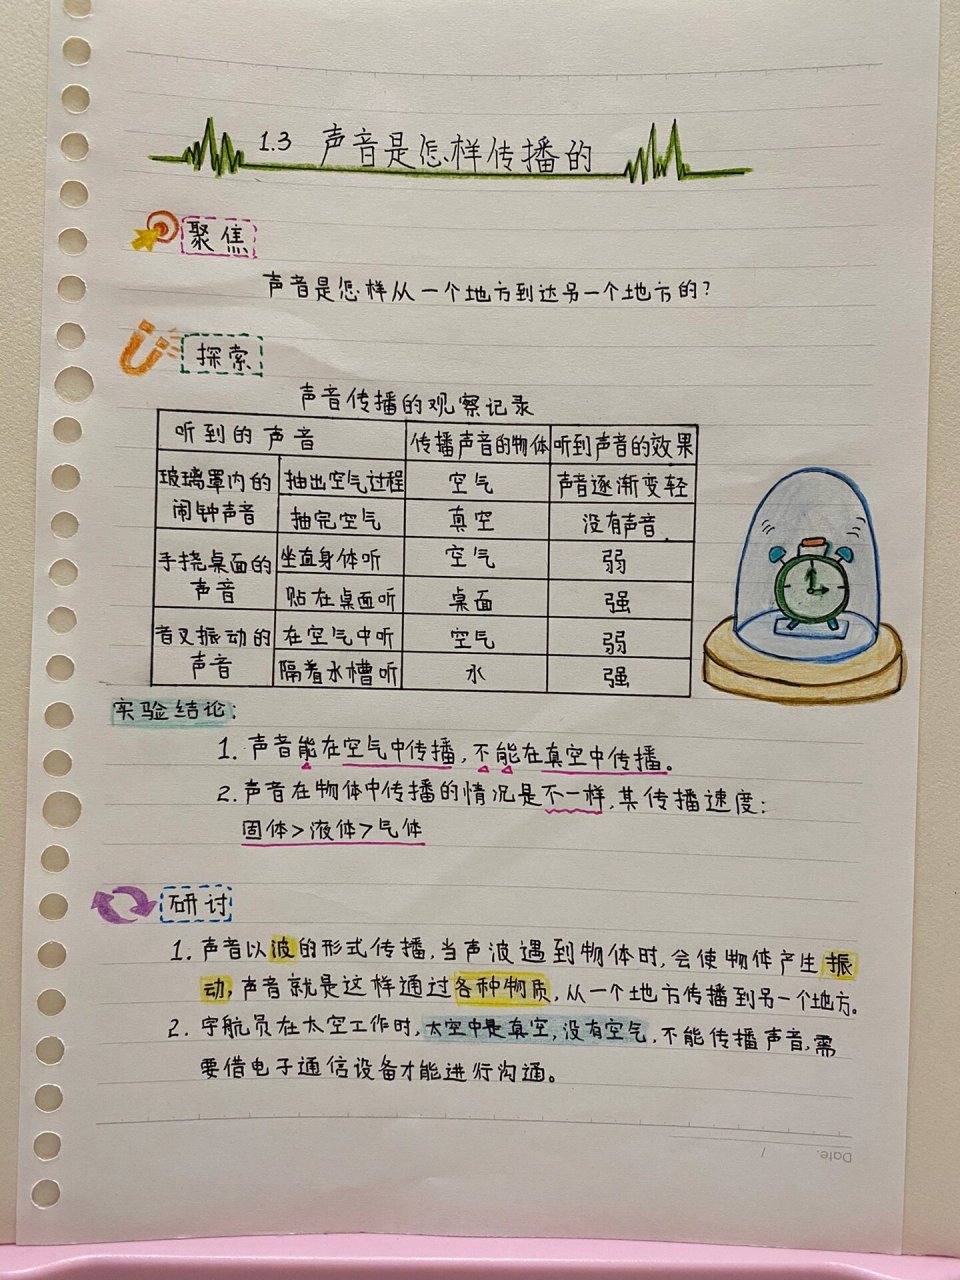 1.3 声音是怎样传播的
聚焦
声音是怎样从一个地方到达另一个地方的?
探索
声音传播的观察记录
听到的声音 传播声音的物体 听到声音的效果
玻璃罩内的闹钟声音 抽出空气过程 空气 声音逐渐变轻
抽完空气 真空 没有声音.
手挠桌面的声音 坐直身体听 空气 弱
贴在桌面听 桌面 强
音叉振动的声音 在空气中听 空气 弱
隔着水槽听 水 强
实验结论:
1. 声音能在空气中传播,不能在真空中传播。
2. 声音在物体中传播的情况是不一样,其传播速度:
固体>液体>气体
研讨
1. 声音以波的形式传播,当声波遇到物体时,会使物体产生振
动,声音就是这样通过各种物质,从一个地方传播到另一个地方。
2. 宇航员在太空工作时,太空中是真空,没有空气,不能传播声音,需
要借电子通信设备才能进行沟通。
Date. /